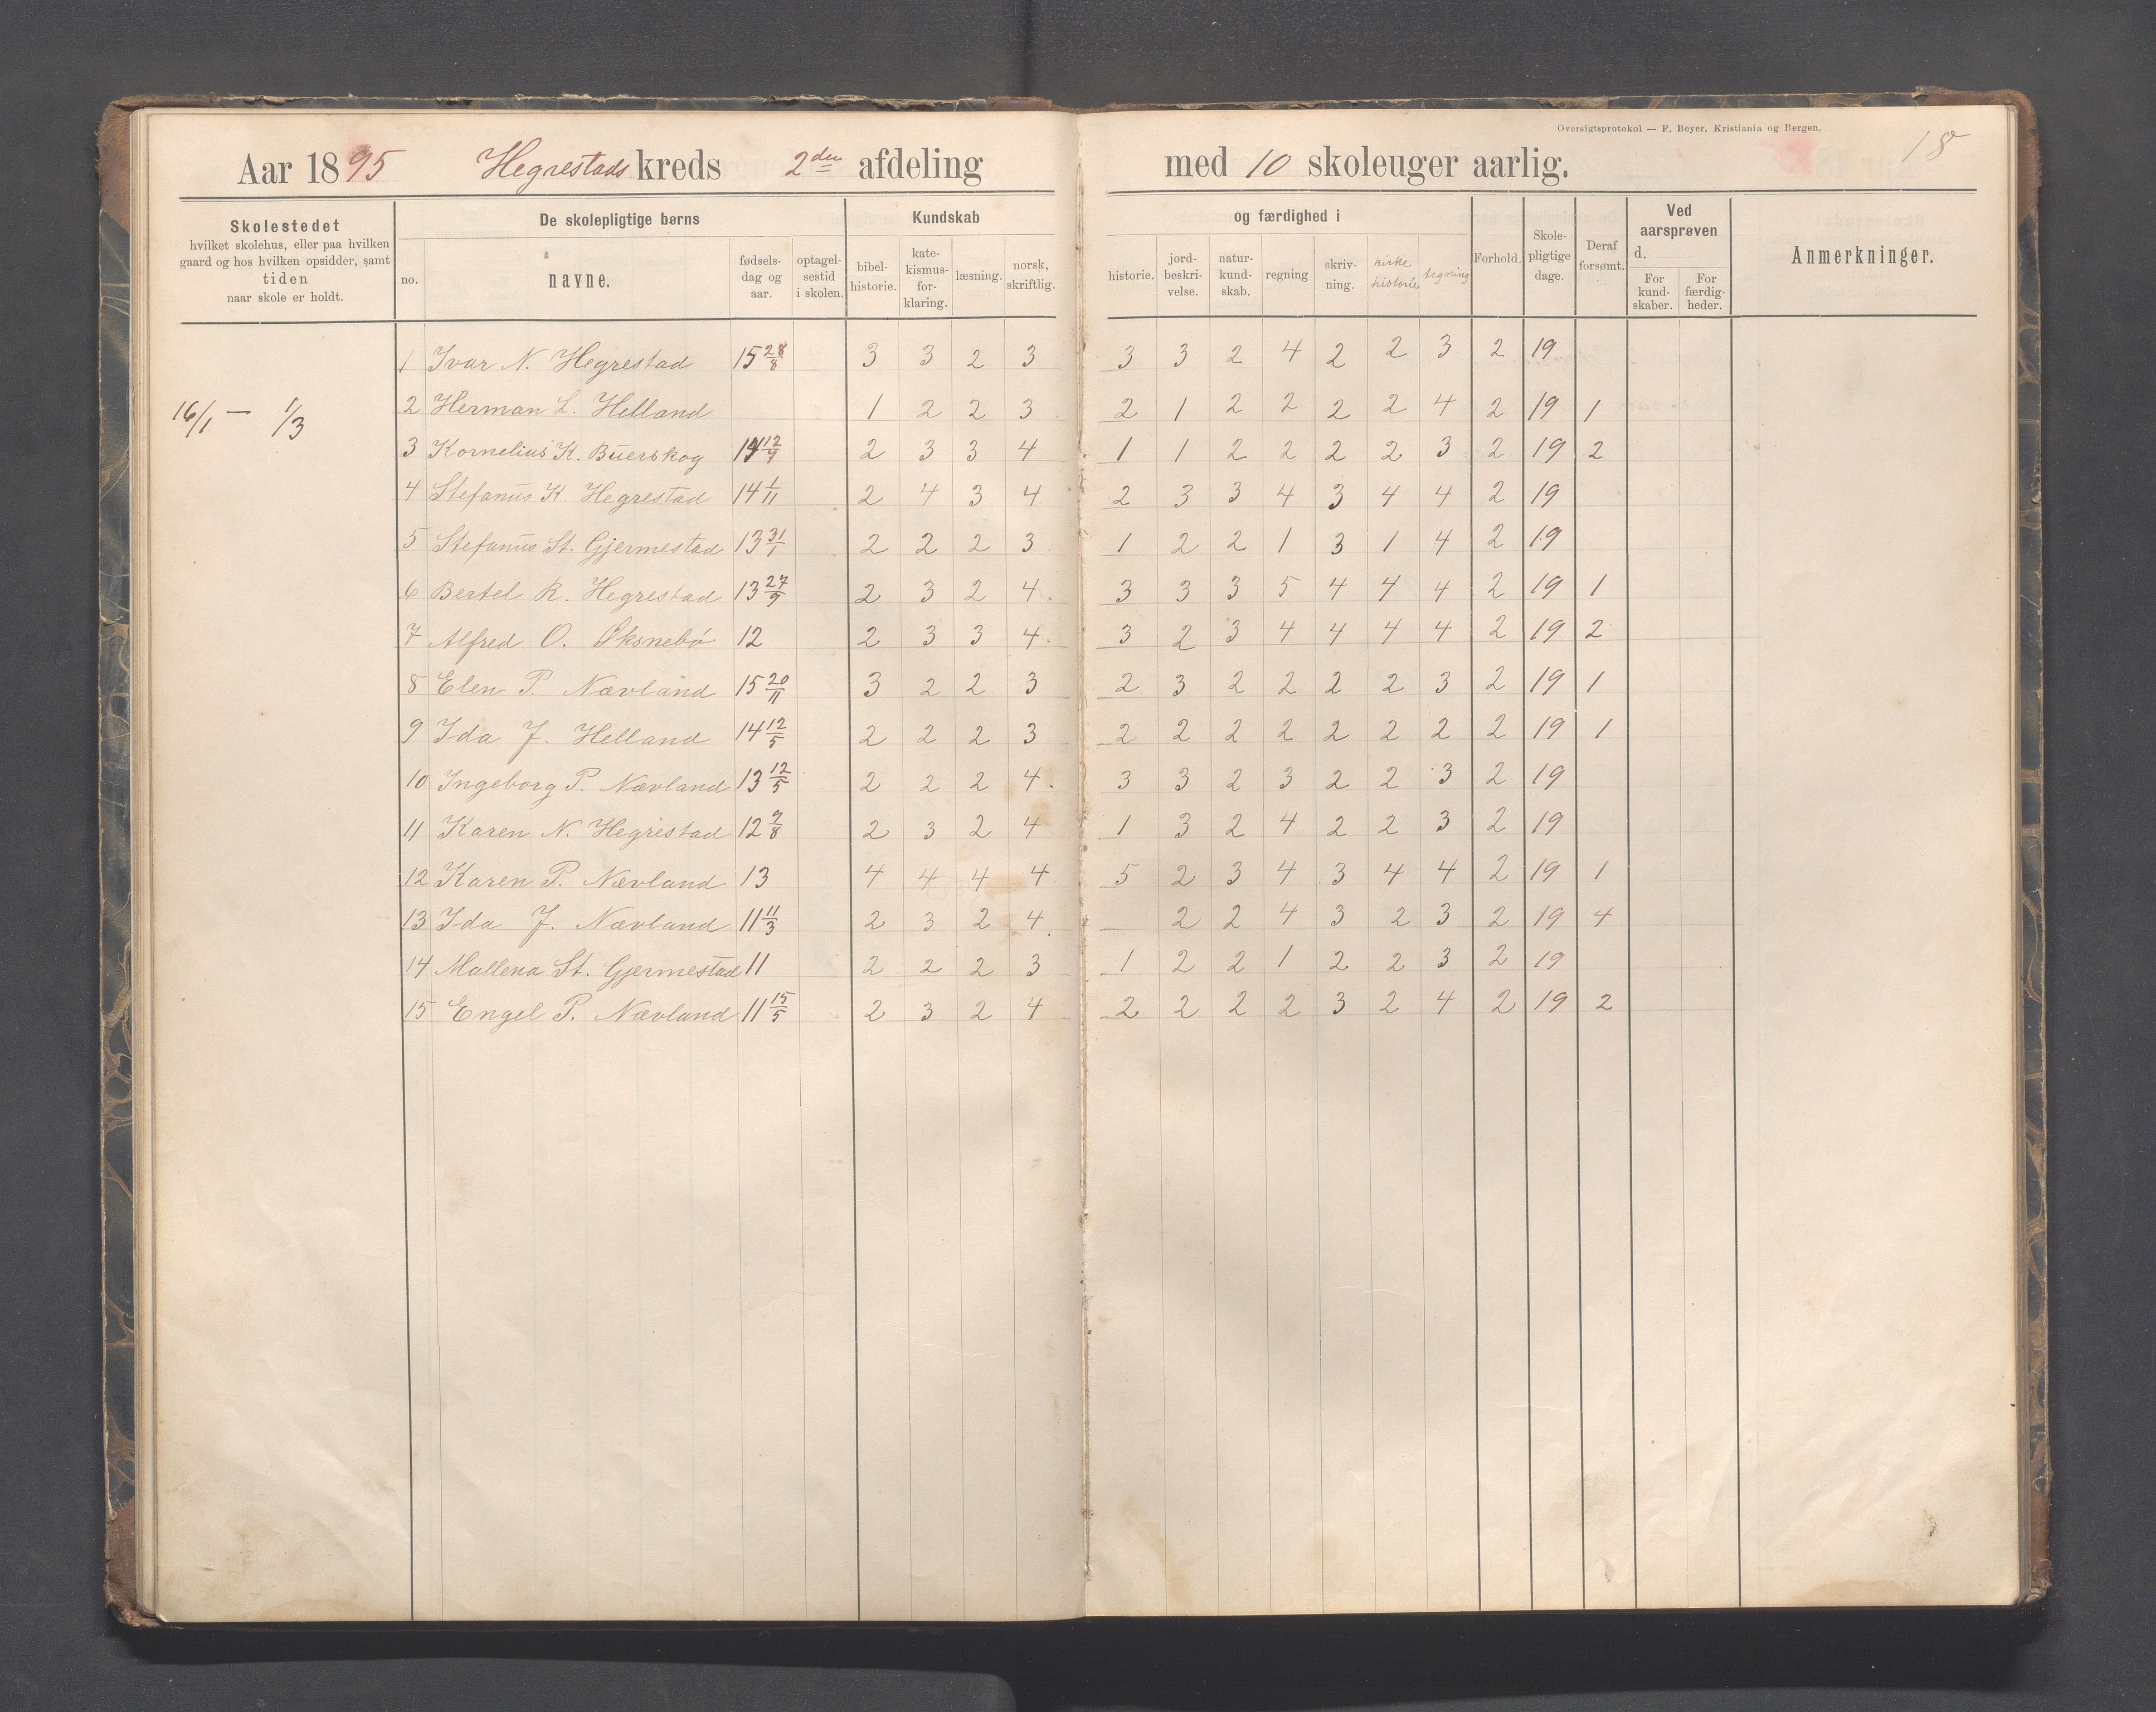 Oversigtsprotokol — F. Beyer, Kristiania og Bergen.
18
Aar 1895 Hegrestads kreds 2den afdeling med 10 skoleuger aarlig.
Skolestedet
hvilket skolehus, eller paa hvilken
gaard og hos hvilken opsidder, samt
tiden
naar skole er holdt.
De skolepligtige børns
no.
navne.
fødsels-
dag og
aar.
optagel-
sestid
i skolen.
Kundskab
bibel-
historie.
kate-
kismus-
for-
klaring.
læsning.
norsk,
skriftlig.
og færdighed i
historie.
jord-
beskri-
velse.
natur-
kund-
skab.
regning
skriv-
ning.
kirke
historie
tegning
Forhold.
Skole-
pligtige
dage.
Deraf
forsømt.
Ved
aarsprøven
d.
For
kund-
skaber.
For
færdig-
heder.
Anmerkninger.
16/1 — 1/3
1 Ivar N. Hegrestad 15 28/8 3 3 2 3 3 3 2 4 2 2 3 2 19
2 Herman L. Helland 1 2 2 3 2 1 2 2 2 2 4 2 19 1
3 Kornelius K. Buerskog 14 12/9 2 3 3 4 1 1 2 2 2 2 3 2 19 2
4 Stefanus K. Hegrestad 14 1/11 2 4 3 4 2 3 3 4 3 4 4 2 19
5 Stefanus St. Gjermestad 13 31/1 2 2 2 3 1 2 2 1 3 1 4 2 19
6 Bertel R. Hegrestad 13 27/9 2 3 2 4 3 3 3 5 4 4 4 2 19 1
7 Alfred O. Øksnebø 12 2 3 3 4 3 2 3 4 4 4 4 2 19 2
8 Elen P. Nævland 15 20/11 3 2 2 3 2 3 2 2 2 2 3 2 19 1
9 Ida J. Helland 14 12/5 2 2 2 3 2 2 2 2 2 2 2 2 19 1
10 Ingeborg P. Nævland 13 12/5 2 2 2 4 3 3 2 3 2 2 3 2 19
11 Karen N. Hegrestad 12 9/8 2 3 2 4 1 3 2 4 2 2 3 2 19
12 Karen P. Nævland 13 4 4 4 4 5 2 3 4 3 4 4 2 19 1
13 Ida J. Nævland 11 11/3 2 3 2 4 2 2 4 3 2 3 2 19 4
14 Mallena St. Gjermestad 11 2 2 2 3 1 2 2 1 2 2 3 2 19
15 Engel P. Nævland 11 15/5 2 3 2 4 2 2 2 2 3 2 4 2 19 2